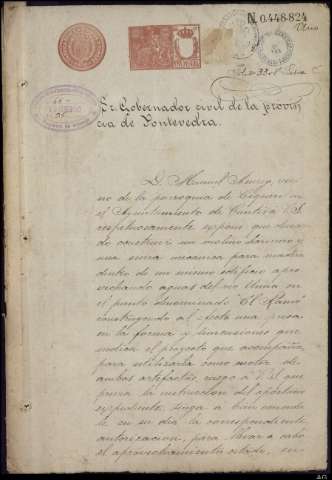 N. 0.448.824
Sr. Gobernador civil de la provin
cia de Pontevedra.
D. Manuel veci
no de la parroquia de
el Ayuntamiento de Cuntis á V.S.
respetuosamente expone que desean
do construir un molino harinero y
una sierra mecánica para madera
dentro de un mismo edificio apro
vechando aguas del río Umia en
el punto denominado
construyendo al efecto una presa
en la forma y dimensiones que
indica el proyecto que acompaña
para utilizarla como motor de
ambos artefactos ruega á V.S. que
previa la instrucción del oportuno
expediente, tenga á bien conceder
le en su día la correspondiente
autorización, para llevar á cabo
el aprovechamiento citado, sin